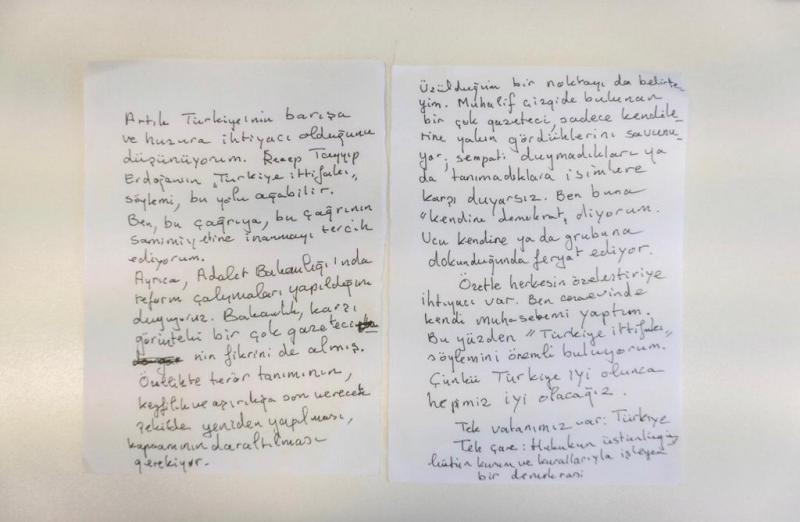 Artık Türkiye'nin barışa
ve huzura ihtiyacı olduğunu
düşünüyorum. Recep Tayyip
Erdoğanın "Türkiye ittifakı"
söylemi, bu yolu açabilir.
Ben, bu çağrıya, bu çağrının
samimiyetine inanmayı tercih
ediyorum.
Ayrıca, Adalet Bakanlığı'nda
reform çalışmaları yapıldığını
duyuyoruz. Bakanlık, karşı
görüşteki bir çok gazeteci
nin fikrini de almış.
Özellikle terör tanımının,
keyfilik ve aşırılığa son verecek
şekilde yeniden yapılması,
kapsamının daraltılması
gerekiyor.
Üzüldüğüm bir noktayı da belirte-
yim. Muhalif çizgide bulunan
bir çok gazeteci, sadece kendile-
rine yakın gördüklerini savunu-
yor, sempati duymadıkları ya
da tanımadıkları isimlere
karşı duyarsız. Ben buna
"kendine demokrat" diyorum.
Ucu kendine ya da grubuna
dokunduğunda feryat ediyor.
Özetle herkesin özeleştiriye
ihtiyacı var. Ben cezaevinde
kendi muhasebemi yaptım.
Bu yüzden "Türkiye ittifakı"
söylemini önemli buluyorum.
Çünkü Türkiye iyi olunca
hepimiz iyi olacağız.
Tek vatanımız var: Türkiye
Tek çare: Hukukun üstünlüğü,
bütün kurum ve kurallarıyla işleyen
bir demokrasi